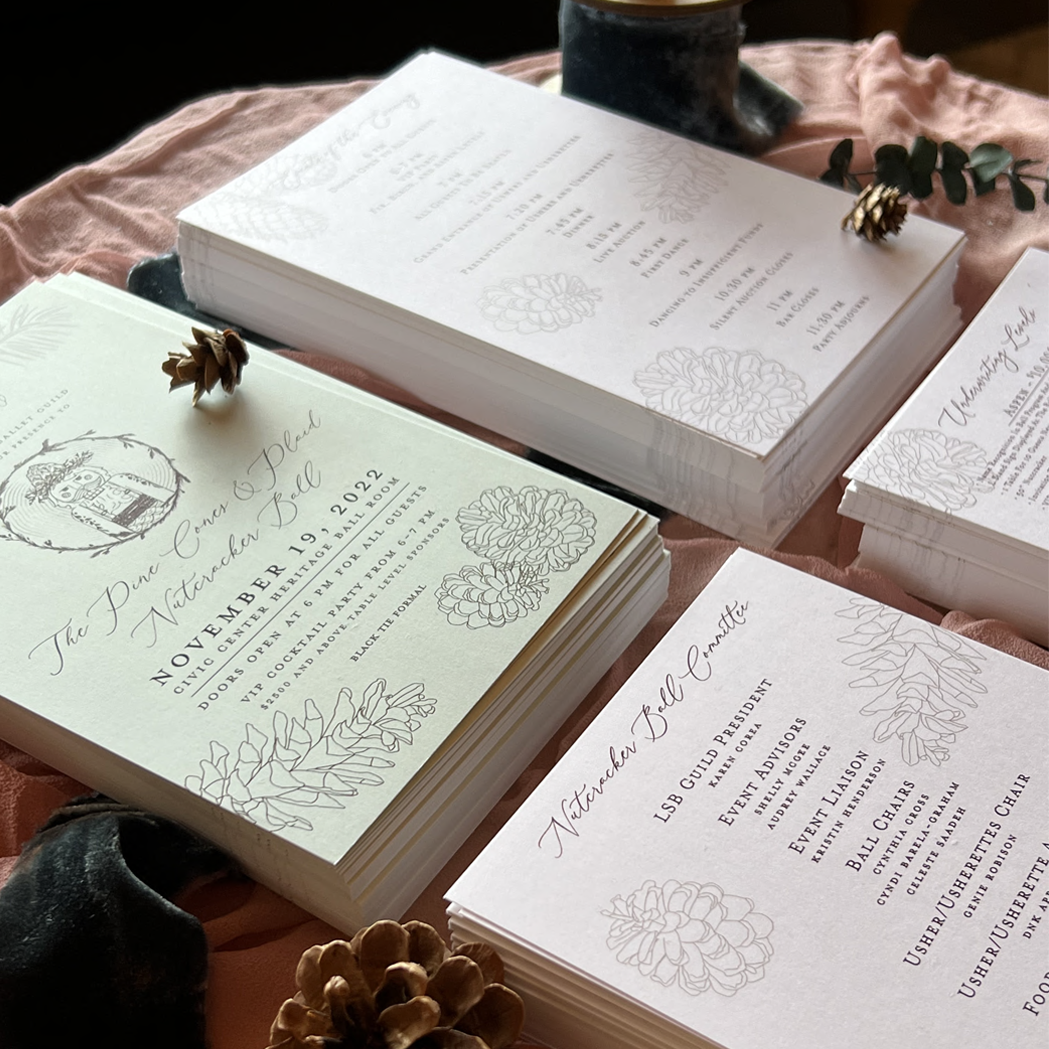 of the Evening
Doors Open to Guests
6 PM
6-7 PM
VIP Party
For $2500, and Above Levels
7 PM
All Guests to Be Seated
7:15 PM
Grand Entrance of Ushers and Usherettes
7:30 PM
Presentation of Ushers and Usherettes
7:45 PM
Dinner
8:15 PM
Live Auction
8:45 PM
First Dance
9 PM
Dancing to Insufficient Funds
10:30 PM
Silent Auction Closes
11 PM
Bar Closes
11:30 PM
Party Adjourns
Underwriting Levels
Aspen - $10,
GUILD
PRESENCE TO
The Pine Cones & Plaid
Nutcracker Ball
NOVEMBER 19, 2022
CIVIC CENTER HERITAGE BALL ROOM
DOORS OPEN AT 6 PM FOR ALL GUESTS
VIP COCKTAIL PARTY FROM 6-7 PM
$2500 AND ABOVE TABLE LEVEL SPONSORS
BLACK TIE FORMAL
Nutcracker Ball Committee
LSB Guild President
Karen Corea
Event Advisors
Shelly McGee
Audrey Wallace
Event Liaison
Kristin Henderson
Ball Chairs
Cynthia Gross
Cyndi Barela-Graham
Celeste Saadeh
Usher/Usherettes Chair
Genie Robison
Usher/Usherette A
Food